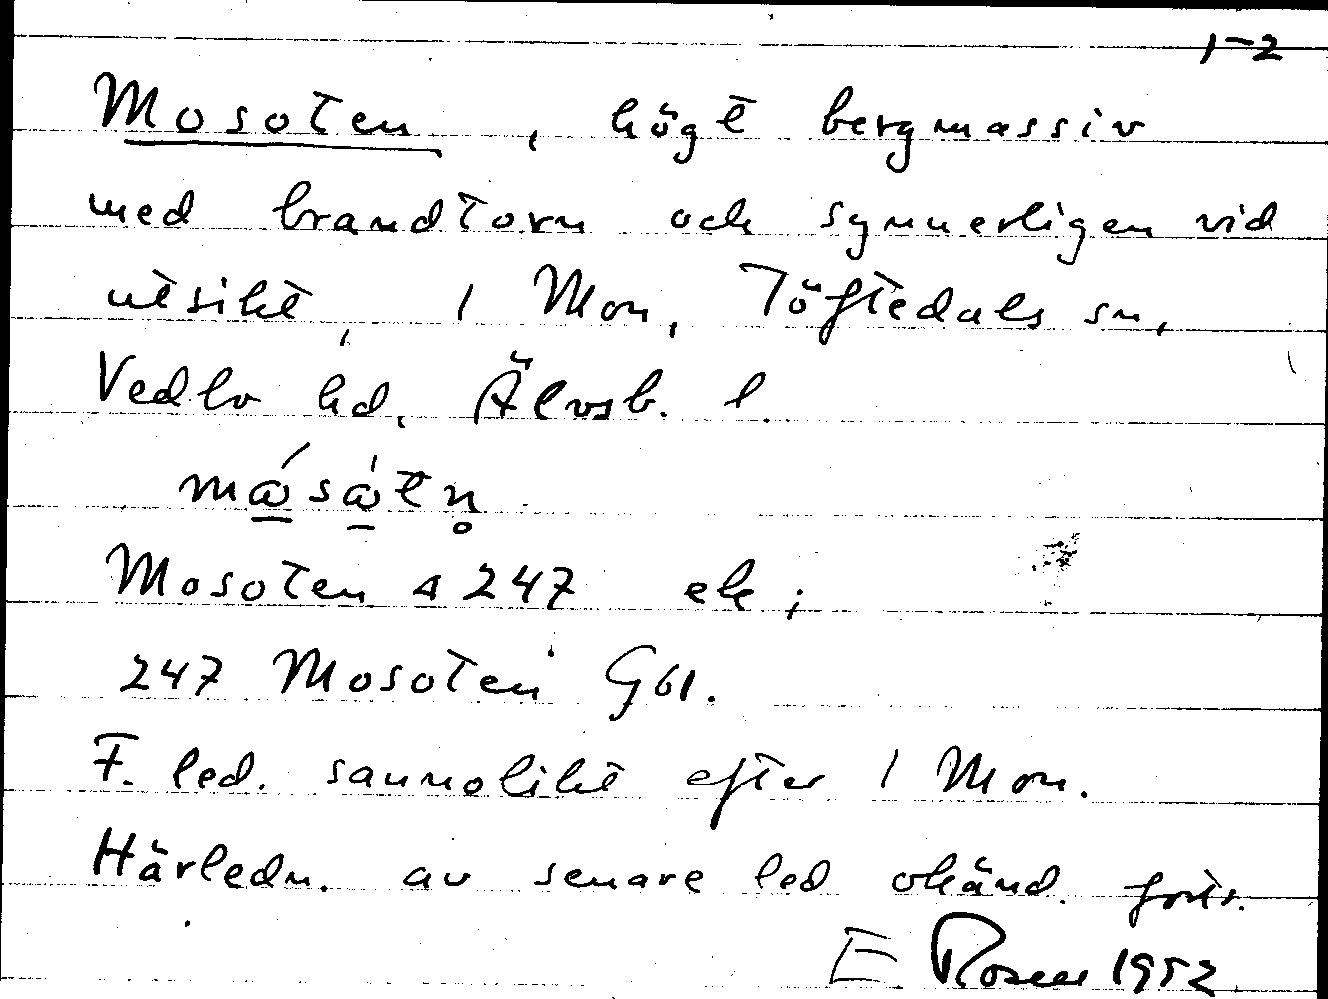 1-2
Mosoten, högt bergmassiv
med brandtorn och synnerligen vid
utsikt, 1 Mon, Töftedals sn,
Vedbo hd, Älvsb. l.
mώ̱sὼ̱tn̥
Mosoten Δ 247 ek;
247 Mosoten Gbl.
F. led. sannolikt efter 1 Mon.
Härledn. av senare led okänd. forts.
E Rosen 1952